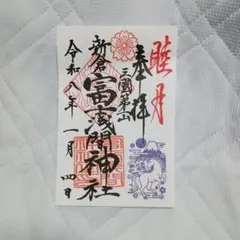 睦月
奉拝
三國第一山
新倉富士浅間神社
令和八年一月四日